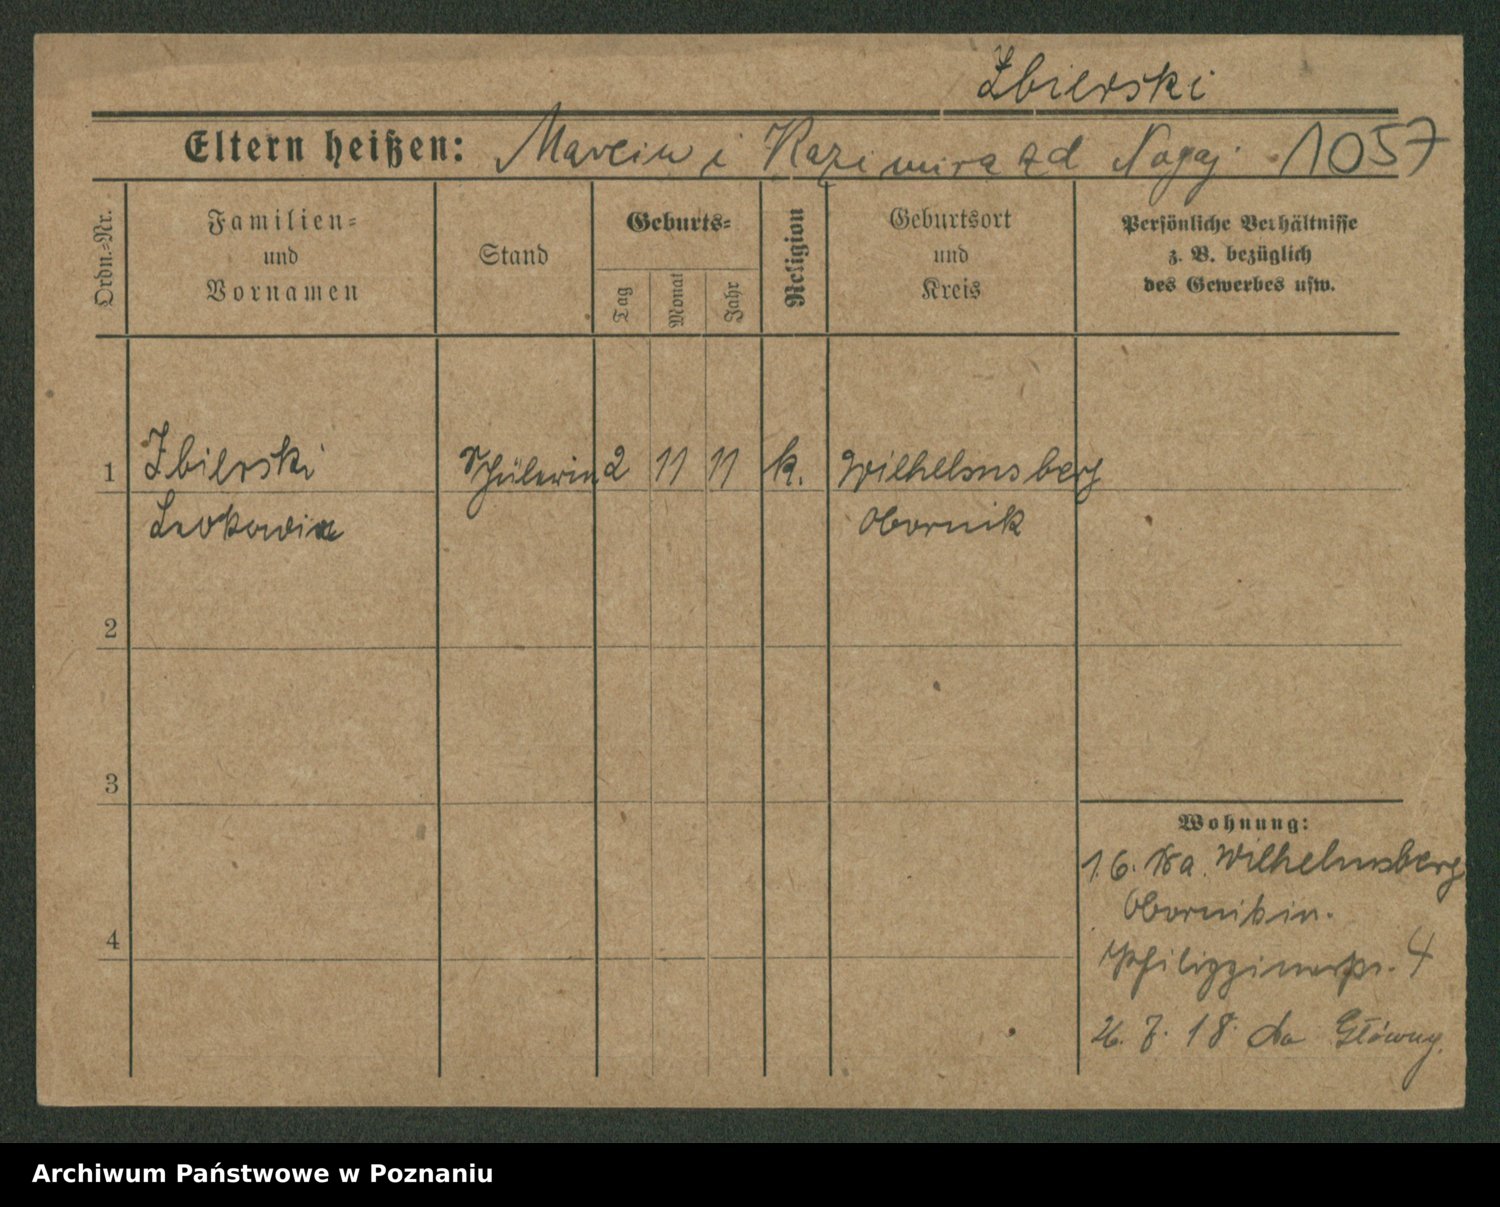 Zbierski
Eltern heißen: Marcin i Kazimira zd Nogaj. 1057
Ordn.-Nr.
Familien-
und
Vornamen
Stand
Geburts-
Tag
Monat
Jahr
Religion
Geburtsort
und
Kreis
Persönliche Verhältnisse
z. B. bezüglich
des Gewerbes usw.
1 Zbierski Schülerin 2 11 11 k. Wilhelmsberg
Obornik
2
3
4
Wohnung:
1.6. Wilhelmsberg
Obornik in.
4
26. 7. 18 Główny.
Archiwum Państwowe w Poznaniu